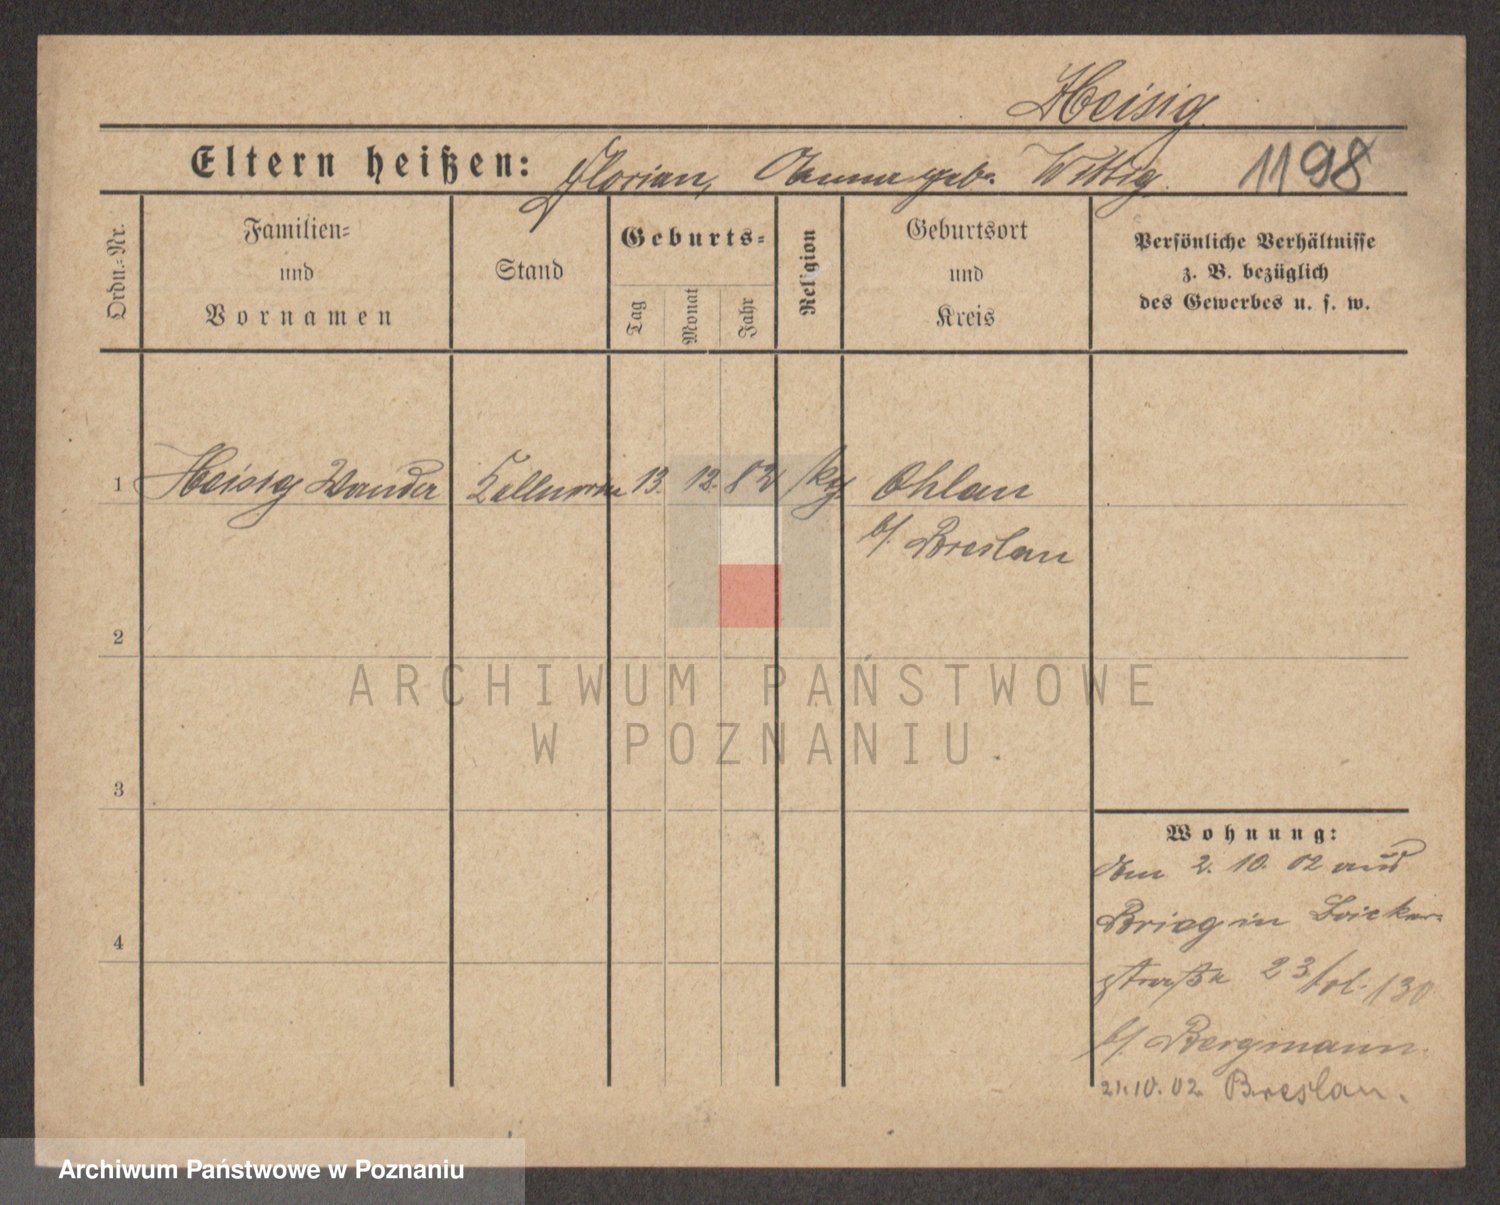 Heisig
Eltern heißen: Florian, Anna geb. Wittig. 1198
Ordn.-Nr.
Familien-
und
Vornamen
Stand
Geburts-
Tag
Monat
Jahr
Religion
Geburtsort
und
Kreis
Persönliche Verhältnisse
z. B. bezüglich
des Gewerbes u. s. w.
1 Heisig Wanda Kellnerin 13. 12. 82 kg Ohlau
b/. Breslau
2
ARCHIWUM PAŃSTWOWE
W POZNANIU
3
Wohnung:
Am 2. 10. 02 aus
Brieg in
4
straße 23/ 130
b/. Bergmann.
21.10.02 Breslau.
Archiwum Państwowe w Poznaniu